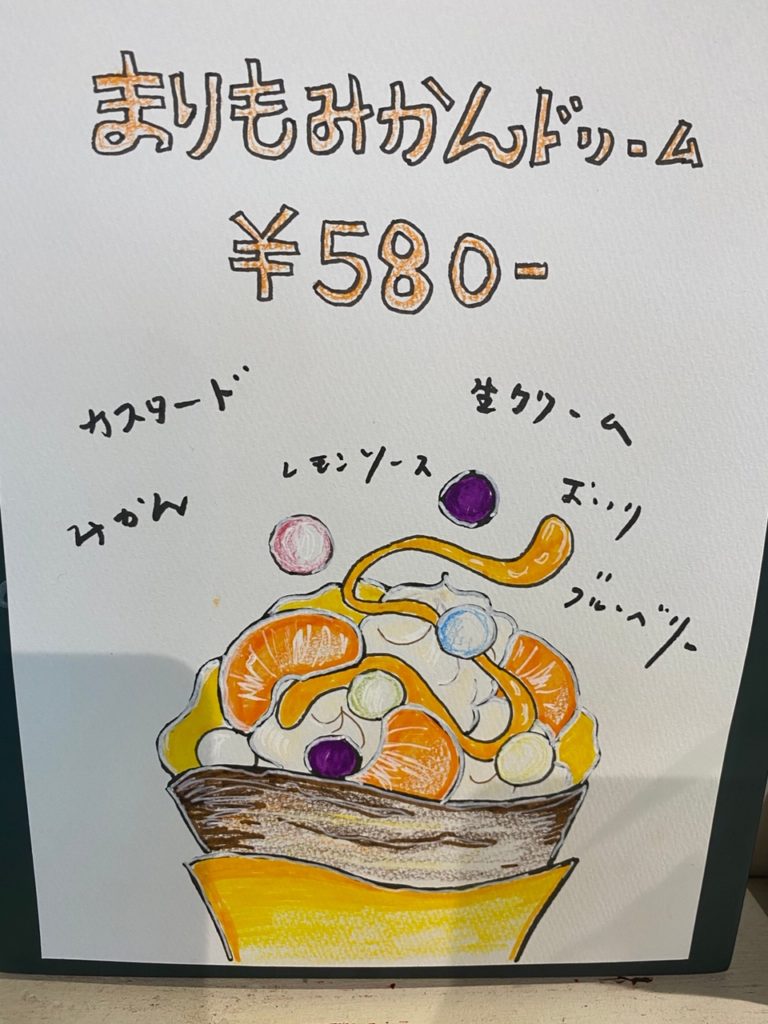 まりもみかんドリーム
¥580-
カスタード
生クリーム
レモンソース
みかん
おいり
ブルーベリー